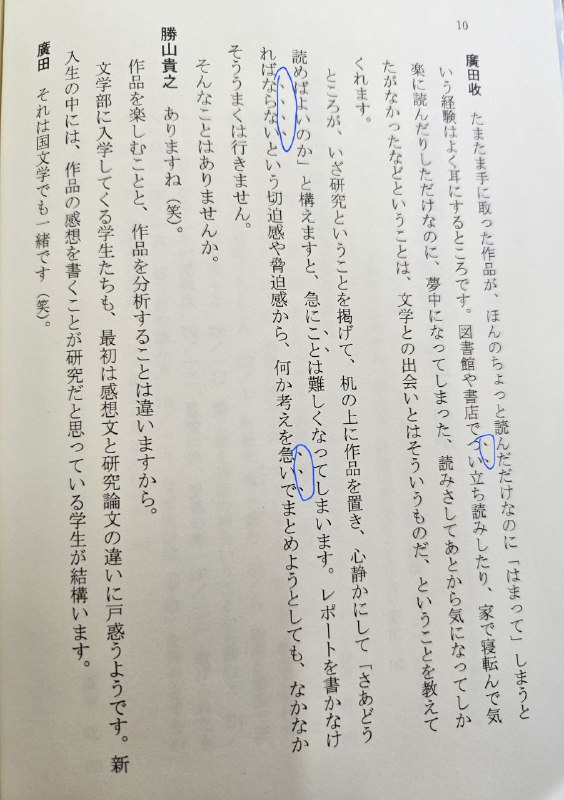 10
廣田收　たまたま手に取った作品が、ほんのちょっと読んだだけなのに「はまって」しまうと
いう経験はよく耳にするところです。図書館や書店でつい立ち読みしたり、家で寝転んで気
楽に読んだりしただけなのに、夢中になってしまった、読みさしてあとから気になってしか
たがなかったなどということは、文学との出会いとはそういうものだ、ということを教えて
くれます。
ところが、いざ研究ということを掲げて、机の上に作品を置き、心静かにして「さあどう
読めばよいのか」と構えますと、急にことは難しくなってしまいます。レポートを書かなけ
ればならないという切迫感や脅迫感から、何か考えを急いでまとめようとしても、なかなか
そううまくは行きません。
そんなことはありませんか。
勝山貴之　ありますね（笑）。
作品を楽しむことと、作品を分析することは違いますから。
文学部に入学してくる学生たちも、最初は感想文と研究論文の違いに戸惑うようです。新
入生の中には、作品の感想を書くことが研究だと思っている学生が結構います。
廣田　それは国文学でも一緒です（笑）。